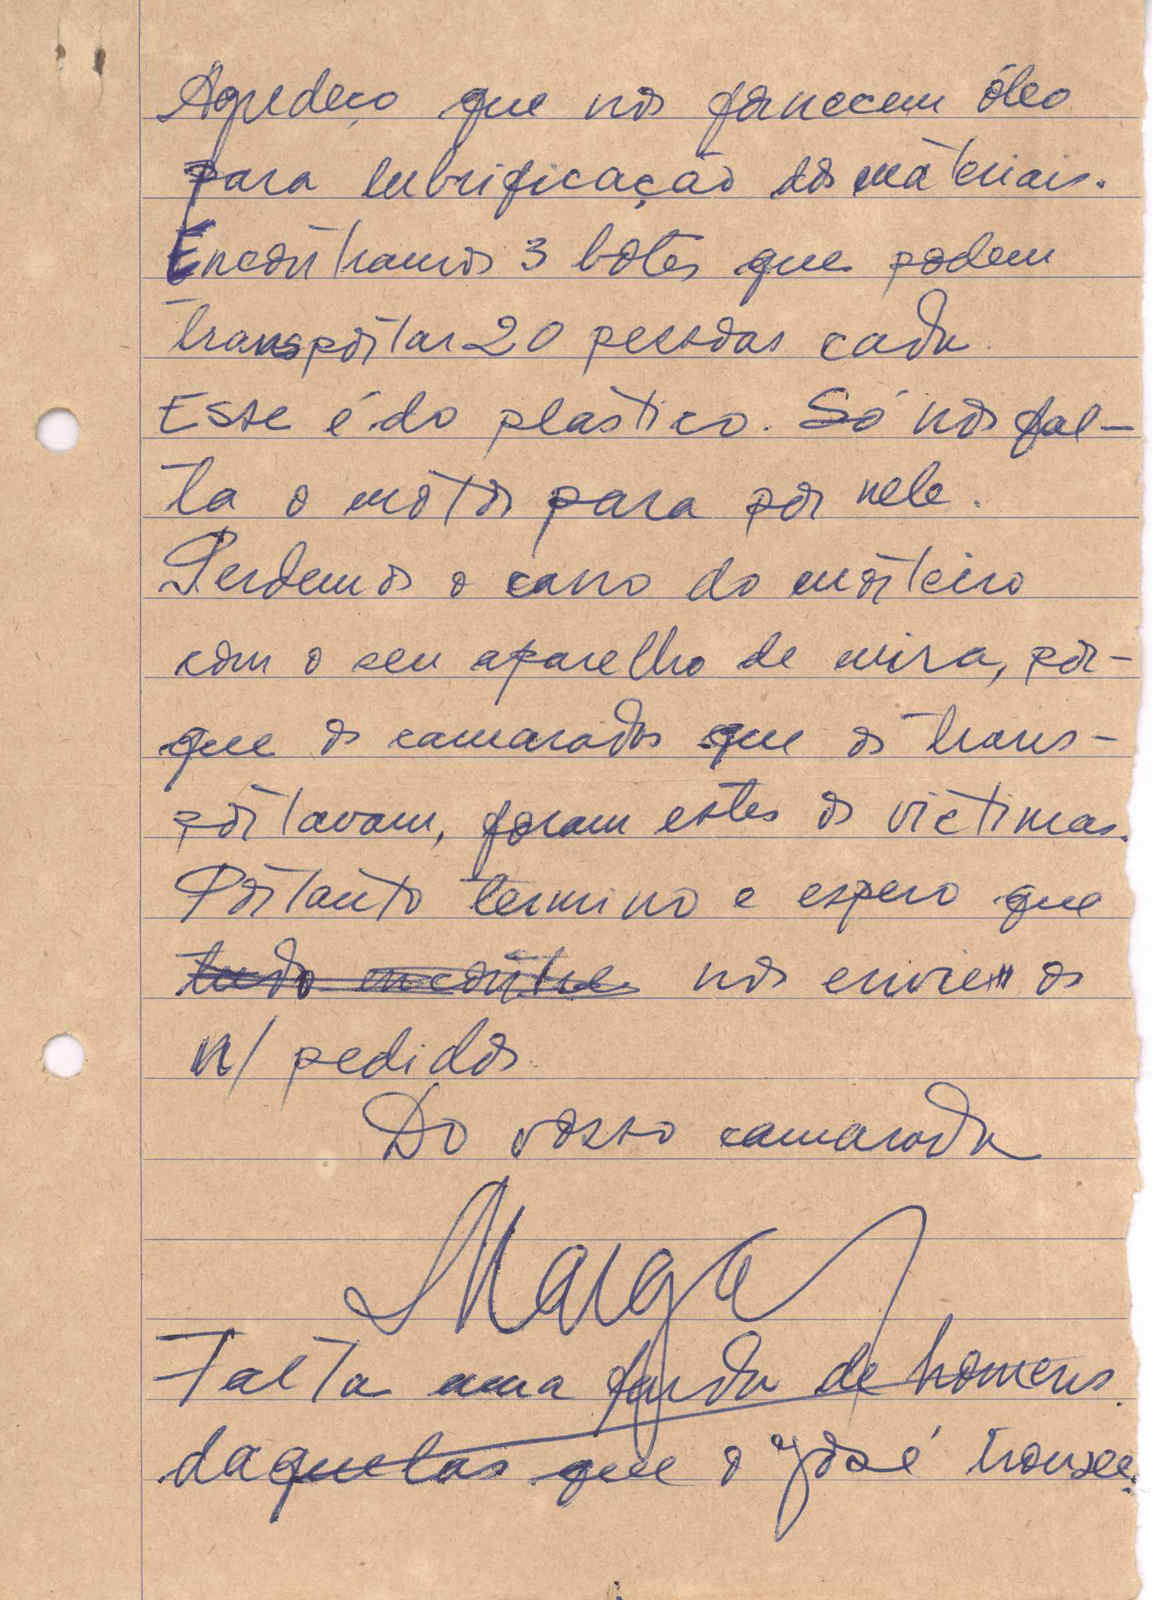 Agredeço que nos fornecem óleo
para lubrificação dos materiais.
Encontramos 3 botes que podem
transportar 20 pessoas cada.
Esse é do plástico. Só nos fal-
ta o motor para por nele.
Perdemos o cano do morteiro
com o seu aparelho de mira, por-
que os camaradas que os trans-
portavam, foram estes os victimas.
Portanto termino e espero que
tudo encontre nos enviem os
n/ pedidos.
Do vosso camarada
Maiga
Falta uma farda de homens
daquelas que o José trouxe.